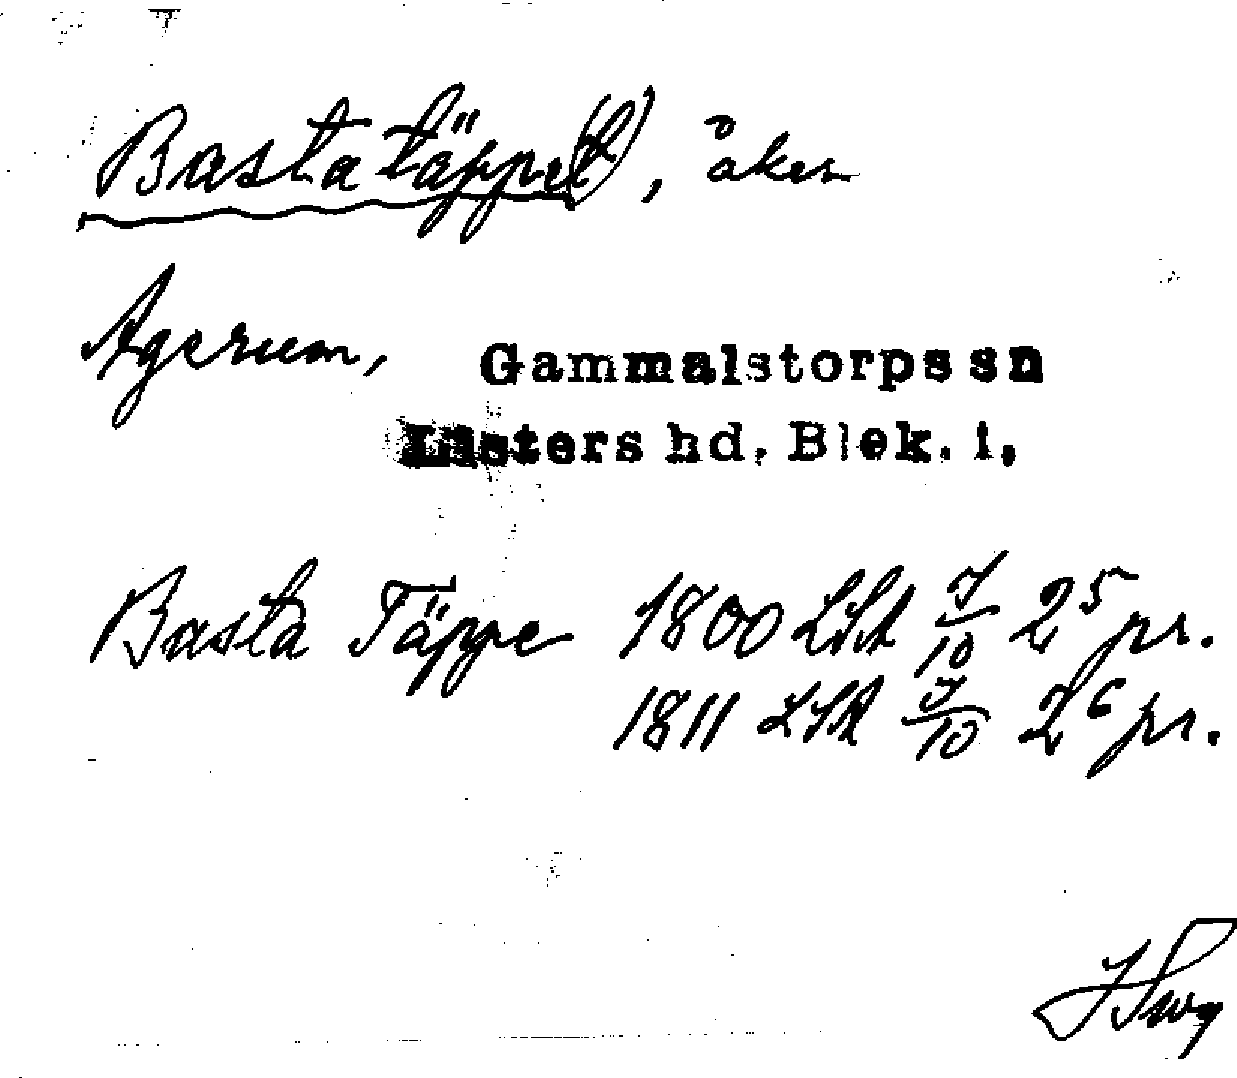 Bastatäppe(t), åker
Agerum, Gammalstorps sn
Listers hd. Blek. l.
Basta Täppe 1800 LSA J/10 2⁵ pr.
1811 LSA J/10 2⁶ pr.